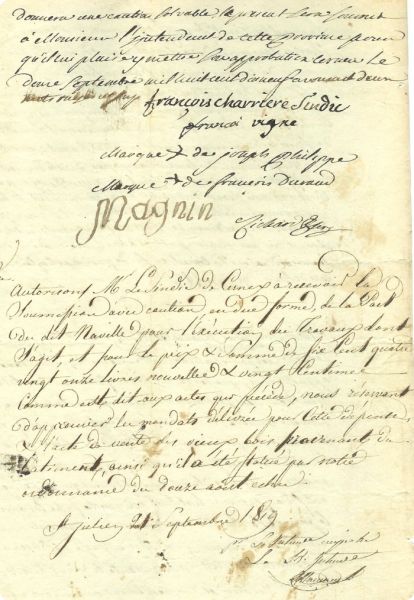 donnera une caution solvable le présent sera soumis
à Monsieur l'Intendant de cette province pour
qu'il lui plaise y mettre son approbation Cernex le
douze Septembre mil huit cent dix neuf avouant deux
mots
françois charriere Sindic
francoi vigne
Marque + de joseph philippe
Marque + de françois Duraud
Magnin
Richard
Autorisons Mr Le Sindic de Cernex à recevoir la
Soumission avec caution en due forme de la Part
du dit Naville pour l'exécution des Travaux dont
S'agit, et pour le prix & Somme de six cent quatre
vingt onze livres nouvelles & vingt Centimes
comme est dit aux actes qui précède, nous réservant
d'approuver les mandats délivrés pour cette dépense
& l'acte de vente des vieux bois provenants du
Bâtiment, ainsi qu'il a été statué par notre
ordonnance du douze août echeu
St julien 21 Septembre 1819
Pr
Le St julien